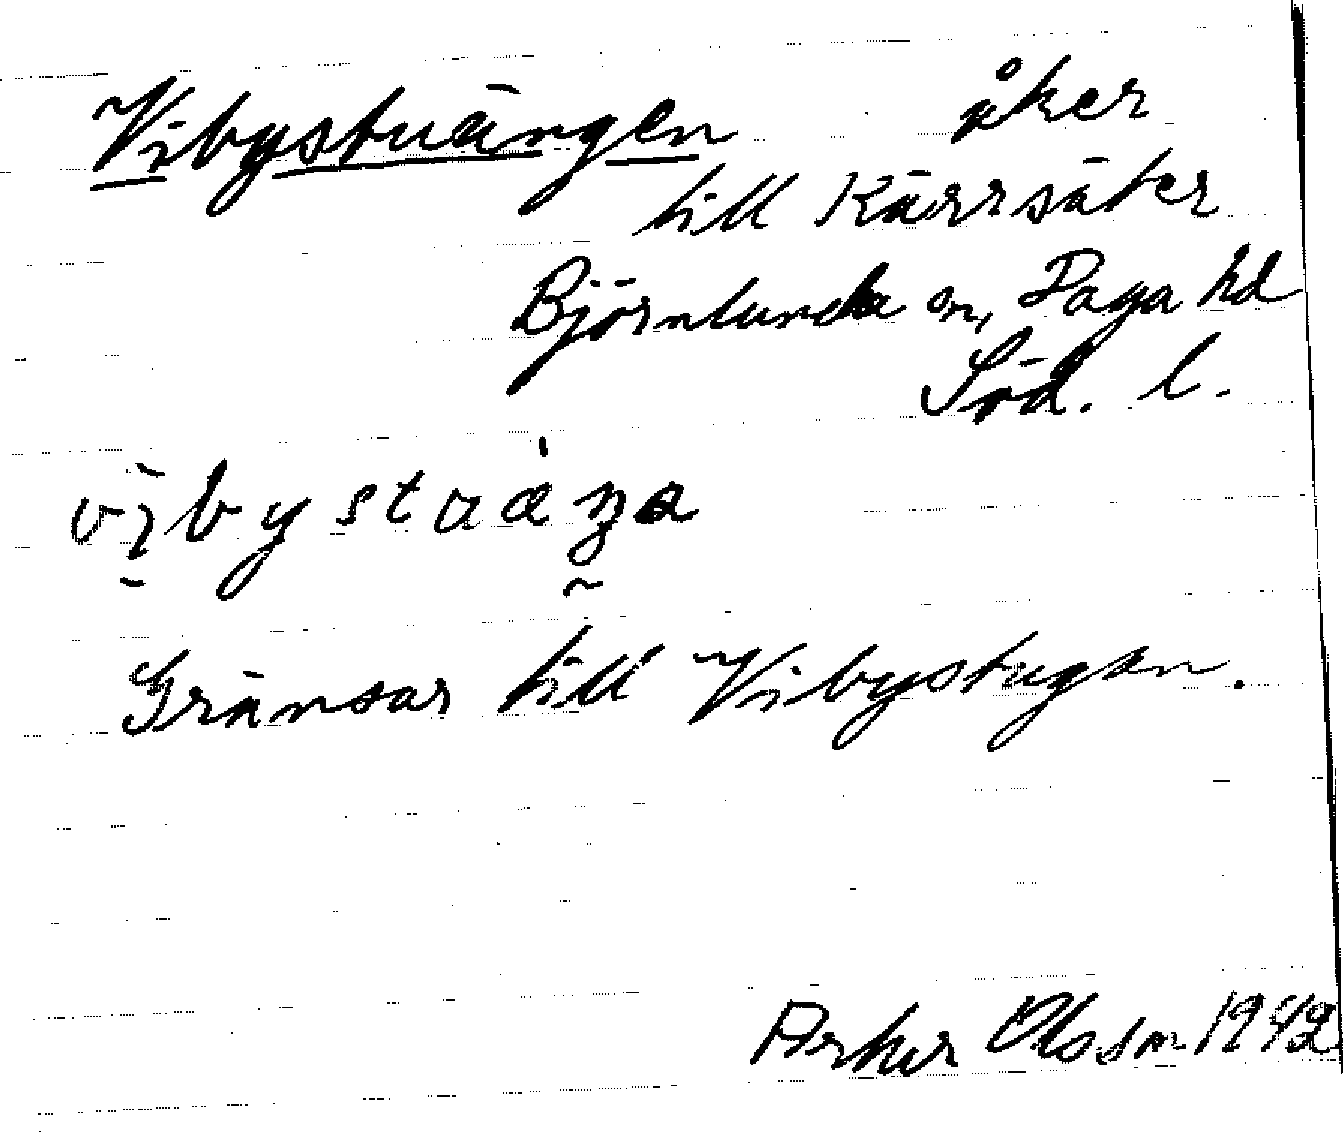 Vibystuängen åker
till Kärrsäter
Björnlunda sn, Daga hd
Söd. l.
Gränsar till Vibystugan.
Olsson 1942